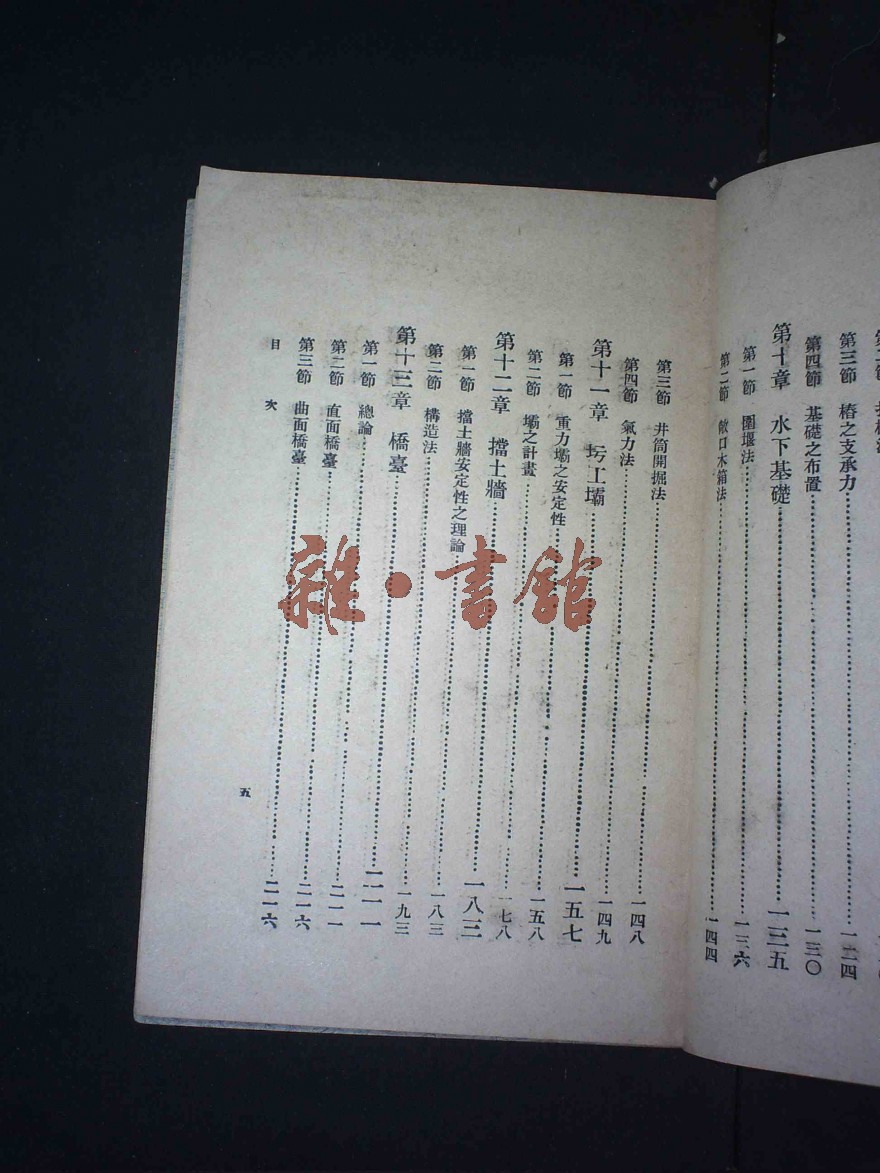 第三節 椿之支承力……一二四
第四節 基礎之布置……一三〇
第十章 水下基礎……一三五
第一節 圍堰法……一三六
第二節 敞口木箱法……一四四
第三節 井筒開掘法……一四八
第四節 氣力法……一四九
第十一章 圬工壩……一五七
第一節 重力壩之安定性……一五八
第二節 壩之計畫……一七八
第十二章 擋土牆……一八三
第一節 擋土牆安定性之理論……一八三
第二節 構造法……一九三
第十三章 橋臺……二一一
第一節 總論……二一一
第二節 直面橋臺……二一六
第三節 曲面橋臺……二一六
目次 五
雜·書館